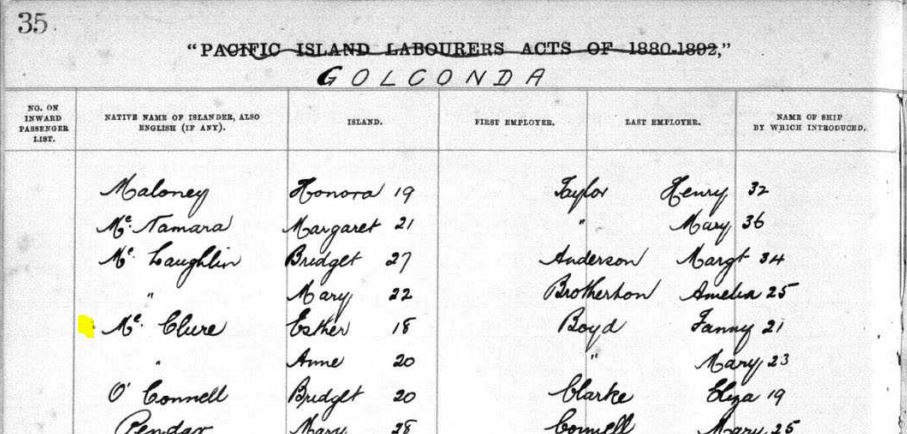 35
"PACIFIC ISLAND LABOURERS ACTS OF 1880-1892,"
GOLCONDA
NO. ON INWARD PASSENGER LIST.
NATIVE NAME OF ISLANDER, ALSO ENGLISH (IF ANY).
ISLAND.
FIRST EMPLOYER.
LAST EMPLOYER.
NAME OF SHIP BY WHICH INTRODUCED.
Maloney Honora 19 Taylor Henry 32
Mc. Namara Margaret 21 " Mary 36
Mc. Laughlin Bridget 27 Anderson Margt 34
" Mary 22 Brotherton Amelia 25
Mc. Clure Esther 18 Boyd Fanny 21
" Anne 20 " Mary 23
O' Connell Bridget 20 Clarke Eliza 19
Mary 28 Connell Mary 25